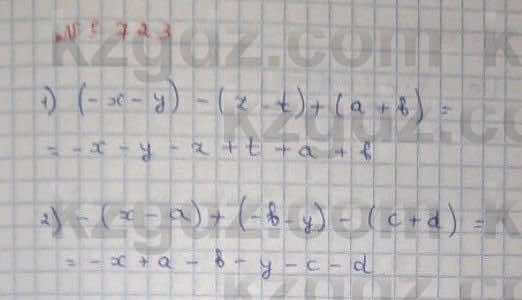 № 723
kzgdz.com
1) (-x-y) - (z-t) + (a+b) =
= -x - y - z + t + a + b
2) -(x-a) + (-b-y) - (c+d) =
= -x + a - b - y - c - d